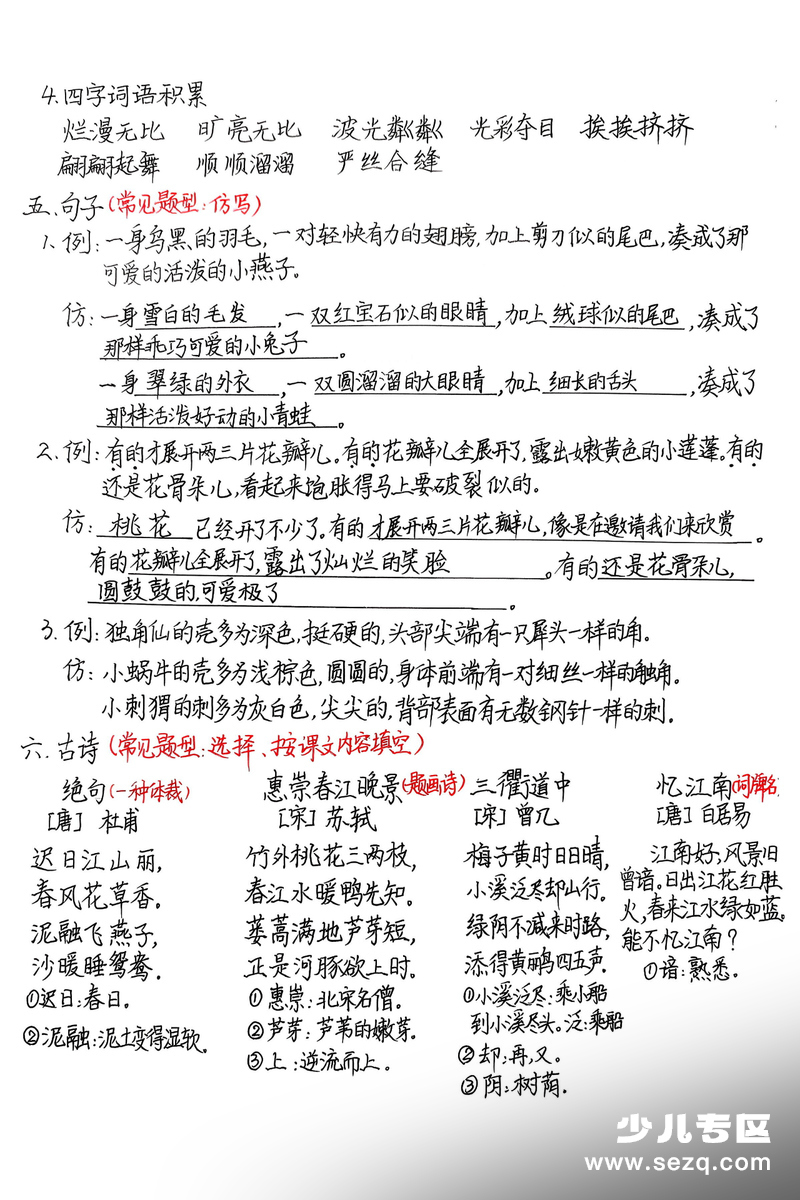 4.四字词语积累
烂漫无比 旷亮无比 波光粼粼 光彩夺目 挨挨挤挤
翩翩起舞 顺顺溜溜 严丝合缝
五.句子(常见题型:仿写)
1.例:一身乌黑的羽毛,一对轻快有力的翅膀,加上剪刀似的尾巴,凑成了那
可爱的活泼的小燕子。
仿:一身雪白的毛发,一双红宝石似的眼睛,加上绒球似的尾巴,凑成了
那样乖巧可爱的小兔子。
一身翠绿的外衣,一双圆溜溜的大眼睛,加上细长的舌头,凑成了
那样活泼好动的小青蛙。
2.例:有的才展开两三片花瓣儿。有的花瓣儿全展开了,露出嫩黄色的小莲蓬。有的
还是花骨朵儿,看起来饱胀得马上要破裂似的。
仿:桃花已经开了不少了。有的才展开两三片花瓣儿,像是在邀请我们来欣赏。
有的花瓣儿全展开了,露出了灿烂的笑脸。有的还是花骨朵儿,
圆鼓鼓的,可爱极了。
3.例:独角仙的壳多为深色,挺硬的,头部尖端有一只犀头一样的角。
仿:小蜗牛的壳多为浅棕色,圆圆的,身体前端有一对细丝一样的触角。
小刺猬的刺多为灰白色,尖尖的,背部表面有无数钢针一样的刺.
六.古诗(常见题型:选择、按课文内容填空)
绝句(一种体裁)
[唐] 杜甫
迟日江山丽,
春风花草香。
泥融飞燕子,
沙暖睡鸳鸯.
①迟日:春日。
②泥融:泥土变得湿软.
惠崇春江晚景(题画诗)
[宋]苏轼
竹外桃花三两枝,
春江水暖鸭先知。
蒌蒿满地芦芽短,
正是河豚欲上时.
①惠崇:北宋名僧.
②芦芽:芦苇的嫩芽.
③上:逆流而上.
三衢道中
[宋]曾几
梅子黄时日日晴,
小溪泛尽却山行。
绿阴不减来时路,
添得黄鹂四五声.
①小溪泛尽:乘小船
到小溪尽头。泛:乘船
②却:再,又.
③阴:树荫.
忆江南(词牌名
[唐]白居易
江南好,风景旧
曾谙。日出江花红胜
火,春来江水绿如蓝。
能不忆江南?
①谙:熟悉。
少儿专区
www.sezq.com